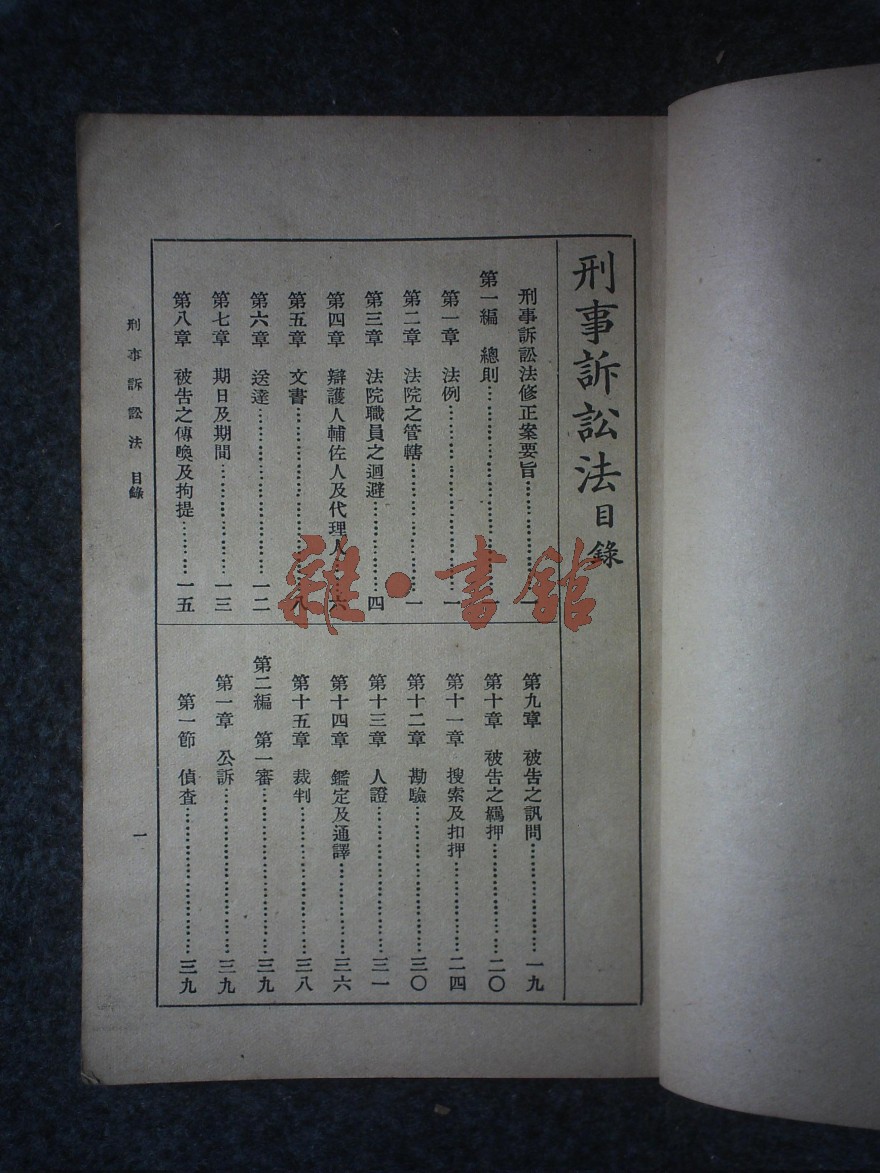 刑事訴訟法目錄
刑事訴訟法修正案要旨……一
第一編　總則……一
第一章　法例……一
第二章　法院之管轄……一
第三章　法院職員之迴避……四
第四章　辯護人輔佐人及代理人……六
第五章　文書……八
第六章　送達……一二
第七章　期日及期間……一三
第八章　被告之傳喚及拘提……一五
第九章　被告之訊問……一九
第十章　被告之羈押……二〇
第十一章　搜索及扣押……二四
第十二章　勘驗……三〇
第十三章　人證……三一
第十四章　鑑定及通譯……三六
第十五章　裁判……三八
第二編　第一審……三九
第一章　公訴……三九
第一節　偵查……三九
刑事訴訟法　目錄
一
雜·書館